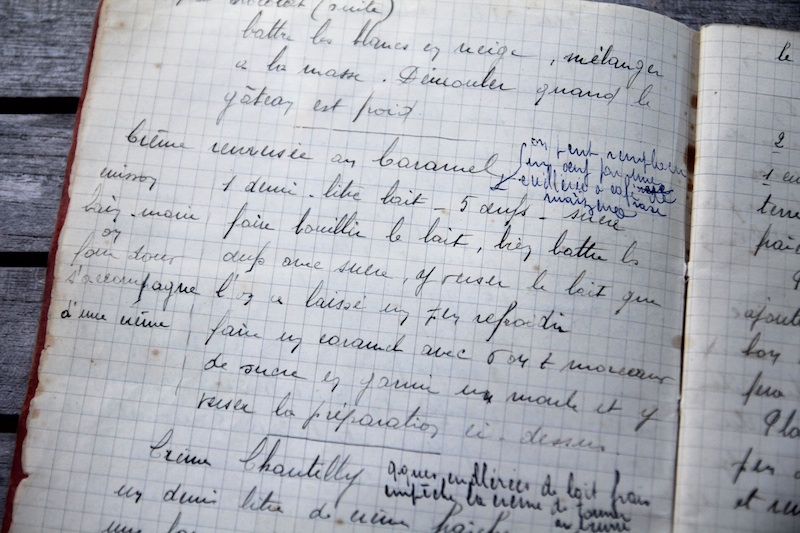 chocolat (suite)
battre les blancs en neige, mélanger
a la masse. Démouler quand le
gâteau est froid
Crème renversée au Caramel
on peut remplacer
un œuf par une
cuillerée à café rase
maïzena
1 demi-litre lait - 5 œufs - sucre
bain-marie faire bouillir le lait, bien battre les
ou
four doux œufs avec sucre, y verser le lait que
s'accompagne l'on a laissé un peu refroidir
d'une crème faire un caramel avec 6 ou 7 morceaux
de sucre en garnir un moule et y
verser la préparation ci-dessus
Crème Chantilly
qques cuillerées de lait frais
empêche la crème de tourner
en beurre
un demi litre de crème fraîche
le
2
1
terre
ajoute
bon
fera
peu
et